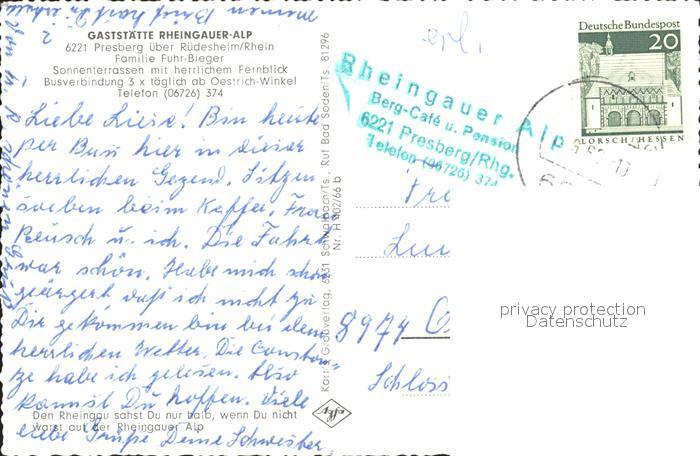 GASTSTÄTTE RHEINGAUER-ALP
6221 Presberg über Rüdesheim/Rhein
Familie Fuhr-Bieger
Sonnenterrassen mit herrlichem Fernblick
Busverbindung 3 x täglich ab Oestrich-Winkel
Telefon (06726) 374
Liebe Liesel! Bin heute
per Bus hier in dieser
herrlichen Gegend. Sitzen
soeben beim Kaffee, Frau
Reusch u. ich. Die Fahrt
war schön. Habe mich schon
geärgert daß ich nicht zu
Dir gekommen bin bei dem
herrlichen Wetter. Die
habe ich gelesen. Also
kannst Du hoffen. Viele
liebe Grüße Deine Schwester
Den Rheingau sahst Du nur halb, wenn Du nicht
warst auf der Rheingauer Alp
Karl Graaverlag, 6231 Schwalbach/Ts., Ruf Bad Soden/Ts. 81296
Nr. H 902/66 b
Agfa
erl.
Rheingauer Alp
Berg-Café u. Pension
6221 Presberg/Rhg.
Telefon (06726) 374
Deutsche Bundespost
20
LORSCH/HESSEN
8974
Schloss
privacy protection
Datenschutz